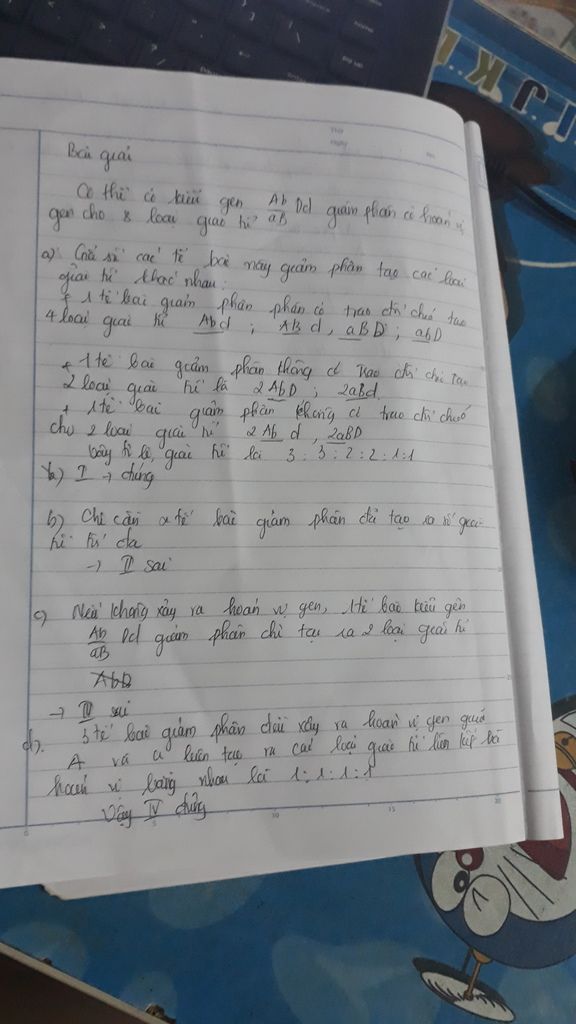 Bài giải
Cơ thể có kiểu gen Ab/aB Dd giảm phân có hoán vị
gen cho 8 loại giao tử
a) Giả sử các tế bào này giảm phân tạo các loại
giao tử khác nhau:
+ 1 tế bào giảm phân phân có trao đổi chéo tạo
4 loại giao tử Ab d ; AB d, aB D ; ab D
+ 1 tế bào giảm phân không có trao đổi chéo tạo
2 loại giao tử là 2 Ab D ; 2 aB d
+ 1 tế bào giảm phân không có trao đổi chéo
cho 2 loại giao tử 2 Ab d, 2 aB D
Vậy tỉ lệ giao tử là 3 : 3 : 2 : 2 : 1 : 1
I → đúng
b) Chỉ cần 2 tế bào giảm phân đã tạo ra số giao
tử tối đa
→ II sai
c) Nếu không xảy ra hoán vị gen, 1 tế bào kiểu gen
Ab/aB Dd giảm phân chỉ tạo ra 2 loại giao tử
→ III sai
d). 3 tế bào giảm phân đều xảy ra hoán vị gen giữa
A và a luôn tạo ra các loại giao tử liên kết và
hoán vị bằng nhau là 1 : 1 : 1 : 1
Vậy IV đúng